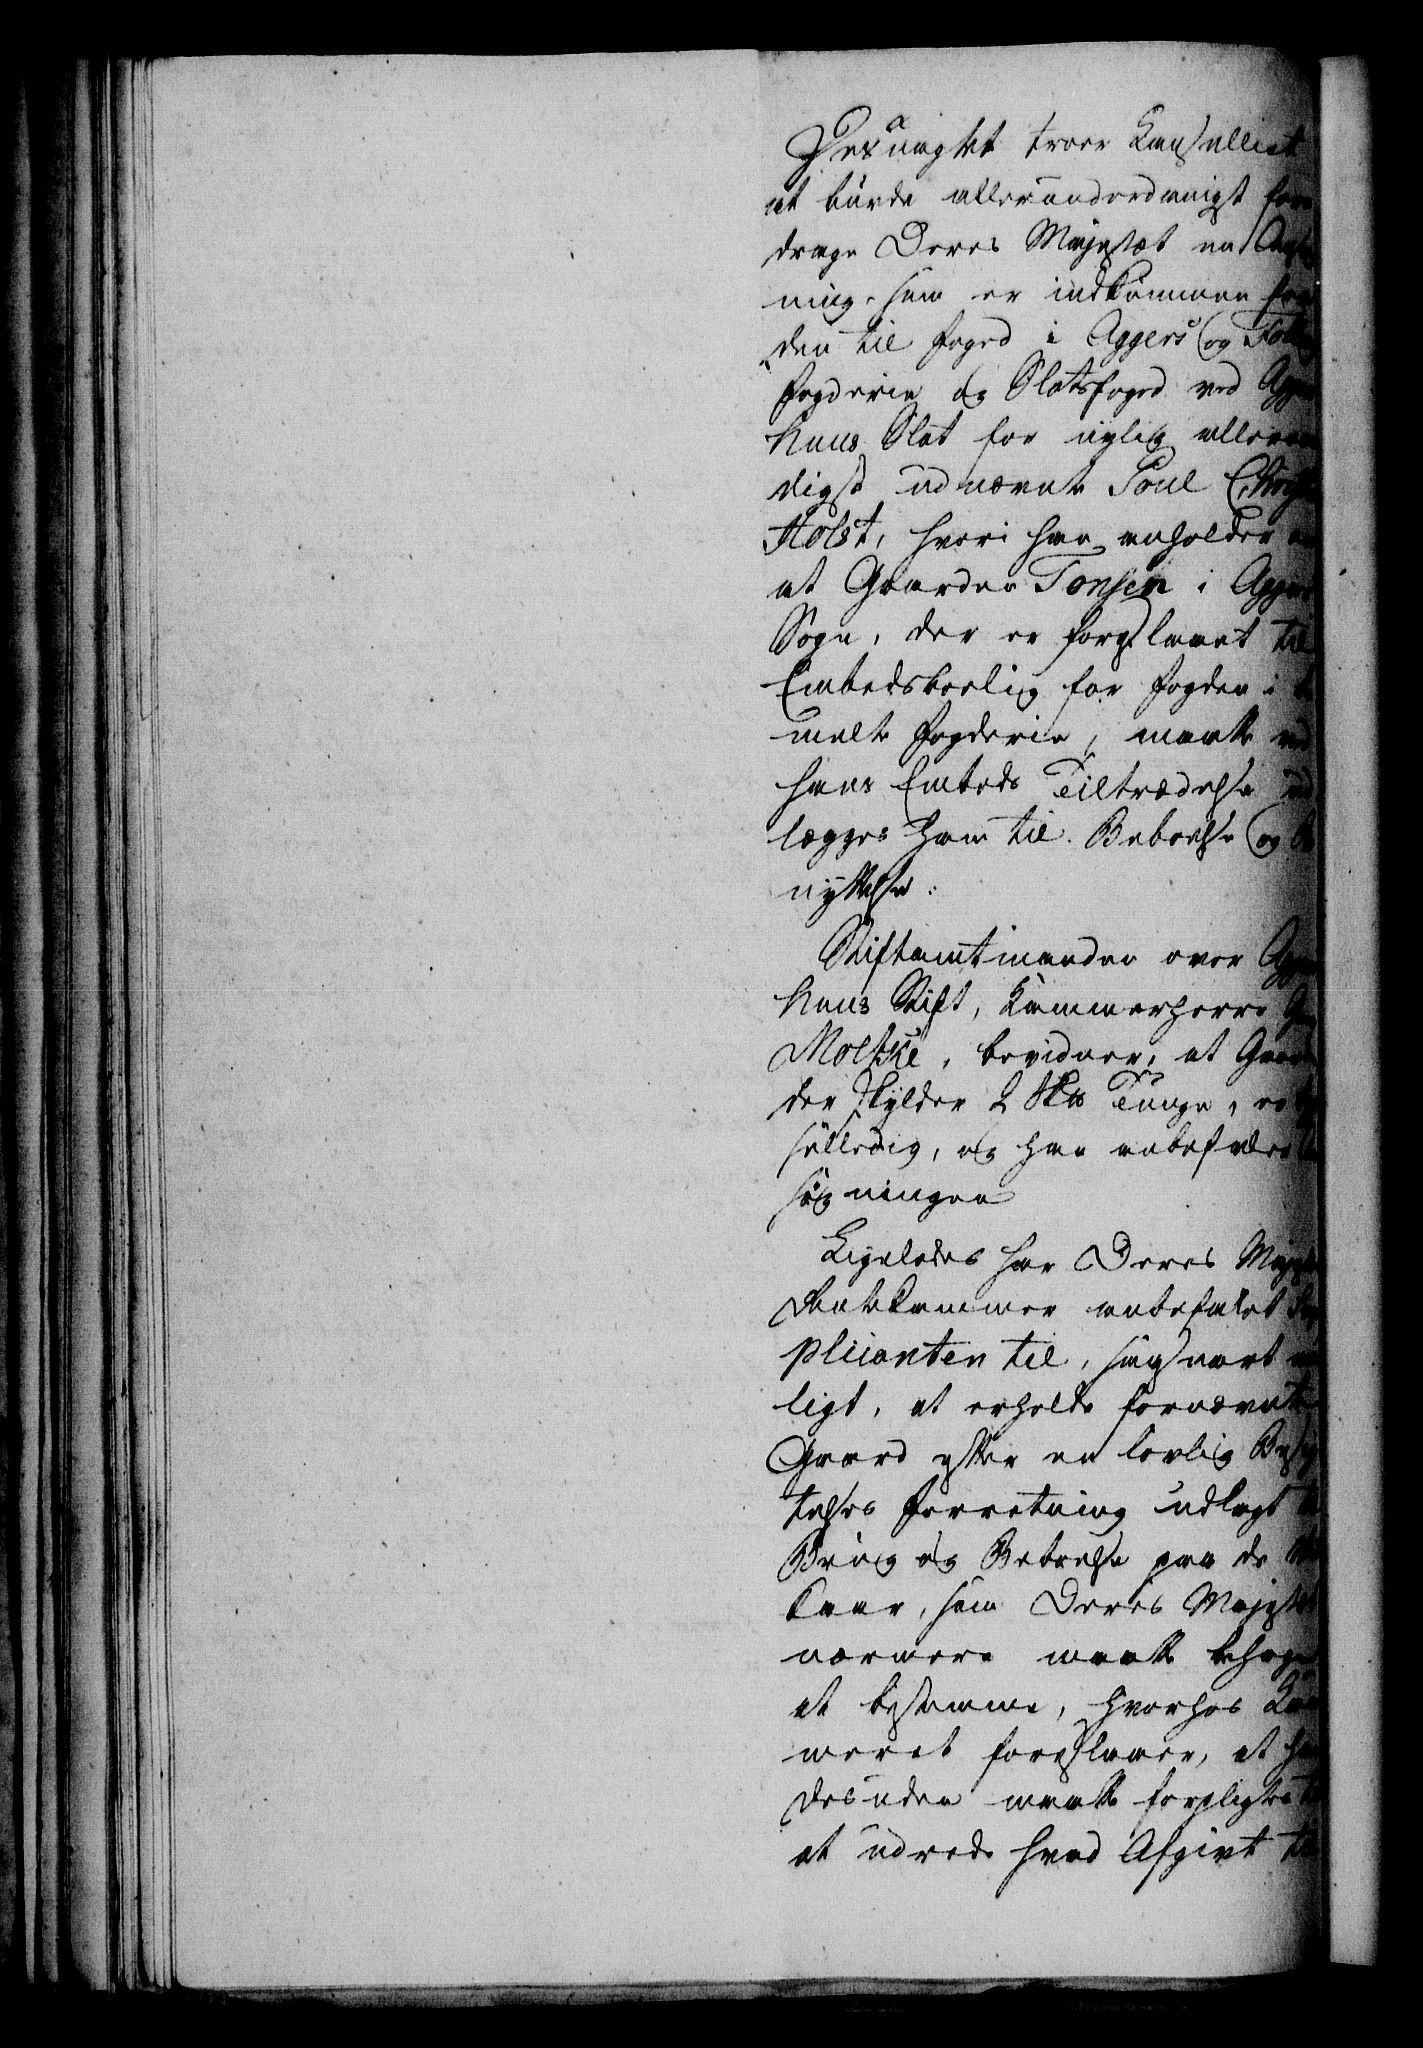 Desuagtet troer Cancelliet
at burde allerunderdanigst fore
drage Deres Majestæt en Ansø
ning som er indkommen fra
den til Foged i Aggers og Follo
Fogderie og Slotsfoged ved Agger
huus Slot for nylig allernaa
digst udnævnte Poul Christ
Holst, hvori han anholder om
at Gaarden Tonsen i Aggers
Sogn, der er foreslaaet til
Embedsbolig for Fogden i be
meldte Fogderie, maatte ved
hans Embeds Tiltrædelse ud
lægges ham til Beboelse og Be
nyttelse.
Stiftamtmanden over Agger
huus Stift, Kammerherre
Moltke, bevidner, at Gaarden
der skylder 2 Skd Tunge, er
, og han anbefaler An
søgningen
Ligeledes har Deres Majestæts
Rentekammer anbefalet Sup
plicanten til, saasnart mu
ligt, at erholde fornævnte
Gaard efter en lovlig Besig
telses Forretning udlagt til
Brug og Beboelse paa de Vil
kaar, som Deres Majestæt
nærmere maatte behage
at bestemme, hvorhos Kam
meret foreslaaer, at han
desuden maatte forpligtes til
at udrede hvad Afgivt til